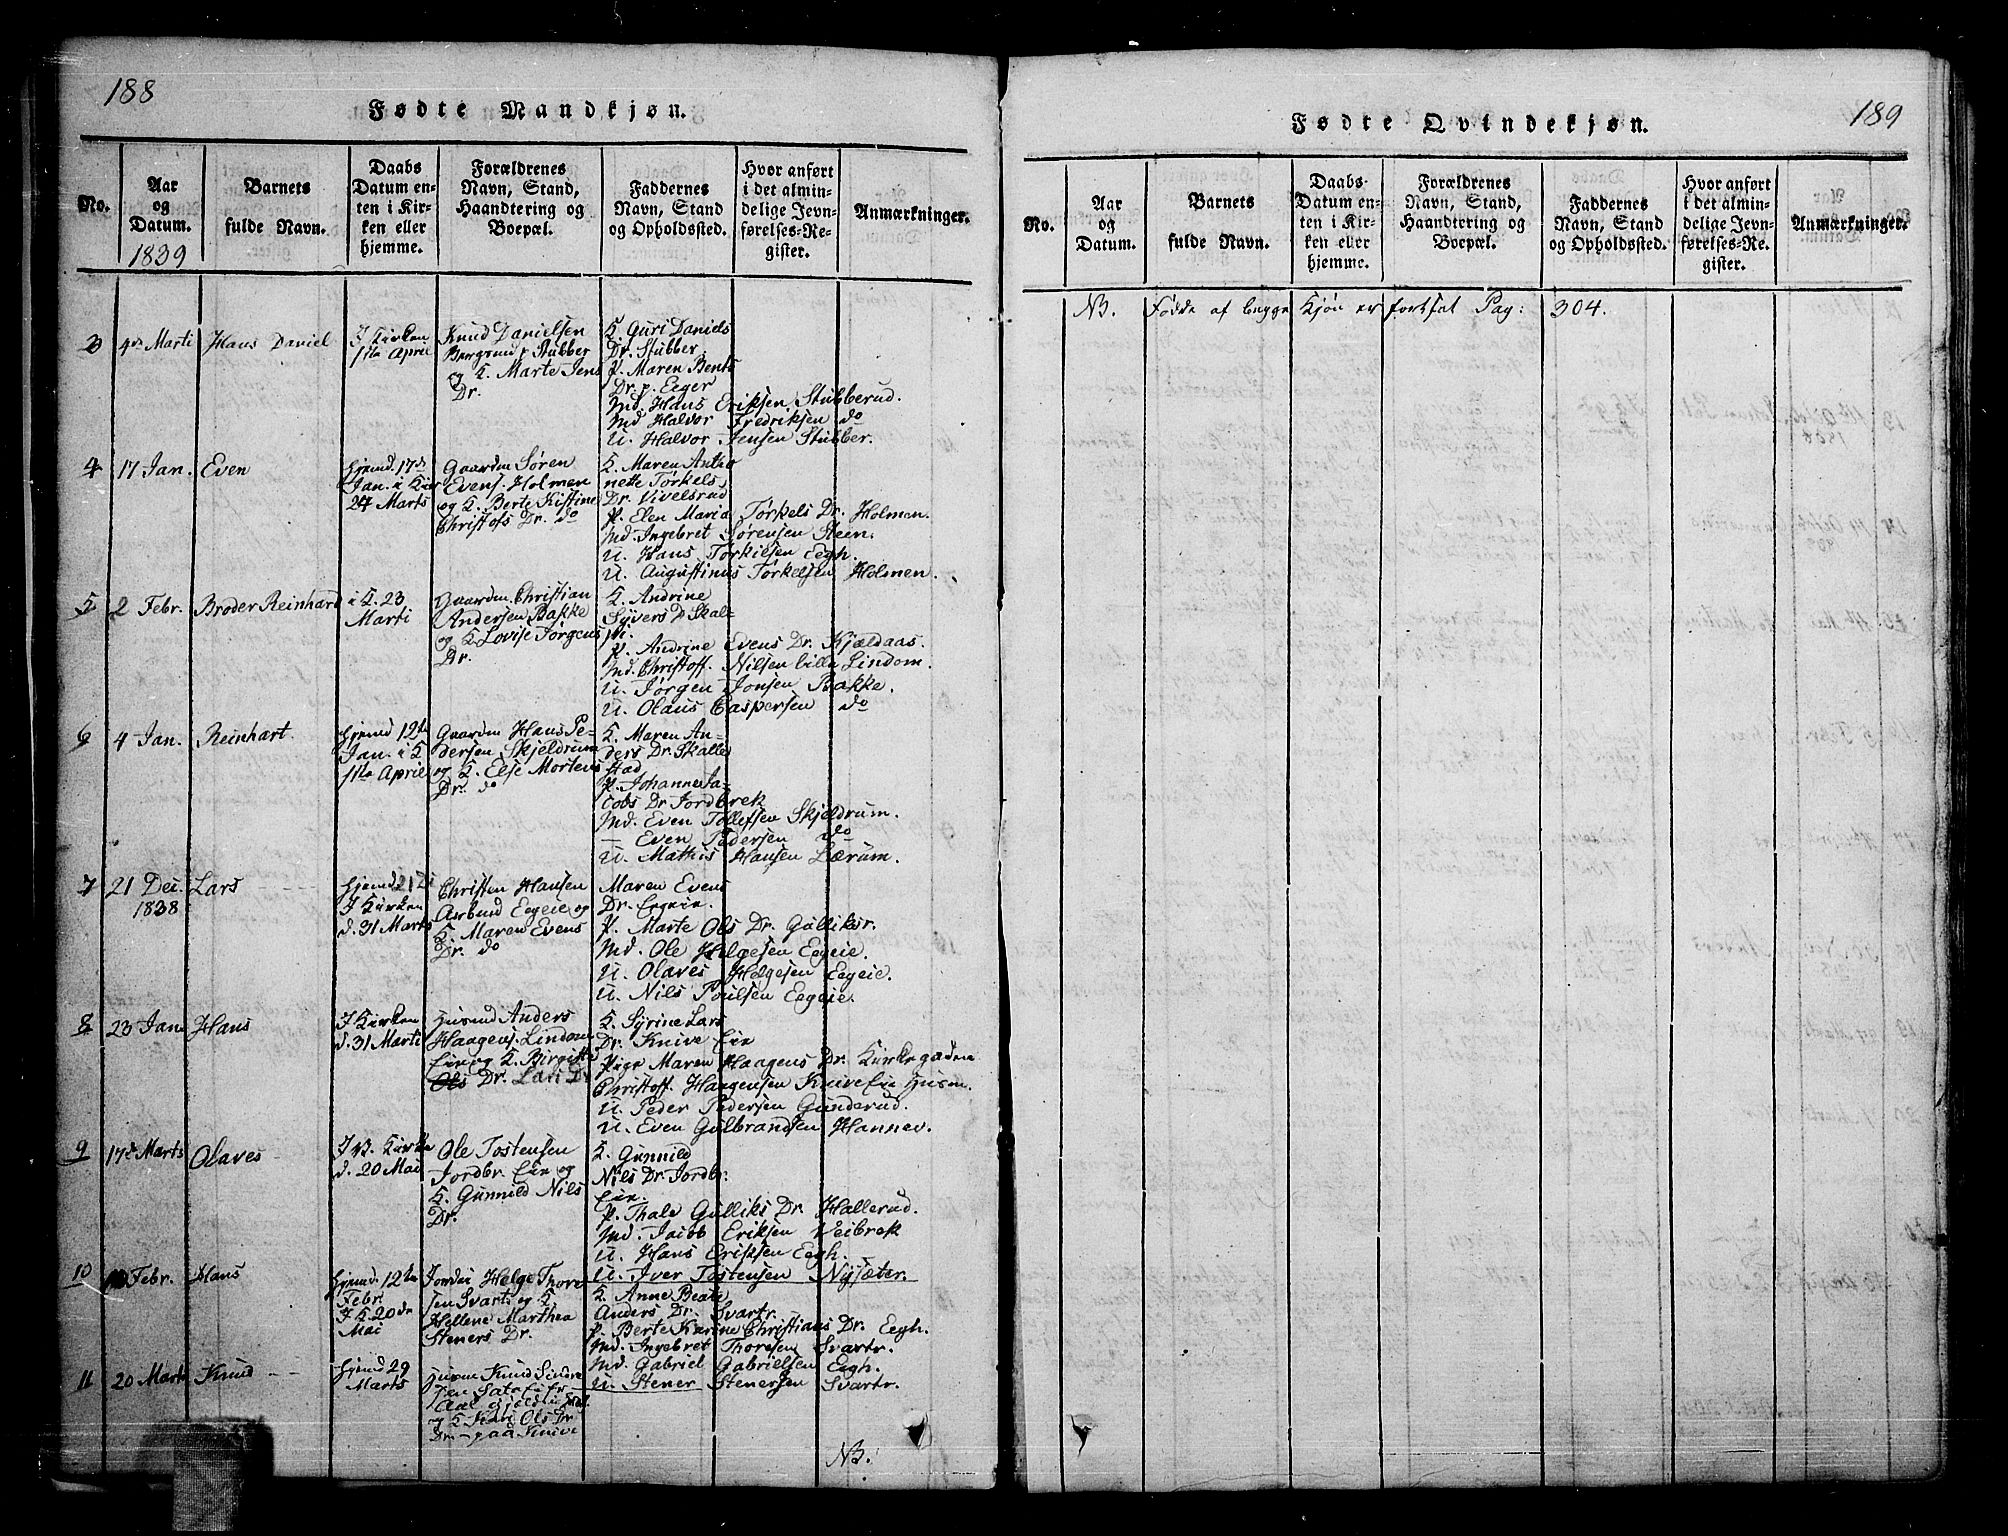 188
Fødte Mandkjøn.
No.
Aar
og
Datum.
1839
Barnets
fulde Navn.
Daabs
Datum en-
ten i Kir-
ken eller
hjemme.
Forældrenes
Navn, Stand,
Haandtering og
Boepæl.
Faddernes
Navn, Stand
og Opholdssted.
Hvor anført
i det almin-
delige Jevn-
førelses-Re-
gister.
Anmærkninger.
3
4de Marti
Hans Daniel
I Kirken
1ste April
Knud Danielsen
Stubber
og K. Marte Jens
Dr.
K. Guri Daniels
Dr. Stubber
P. Maren Bents
Dr. p. Eeger
Md. Hans Eriksen Stubberud.
Md Halvor Fredriksen do
U. Halvor Jensen Stubber.
4
17 Jan.
Even
Hjemd. 17de
Jan. i Kir
24 Marts
Gaardm Søren
Evens. Holmen
og K. Berte Kistine
Christofs Dr. do
K. Maren Antho
nette Tørkels
Dr. Vivelsrud
P. Elen Maria Tørkels Dr. Holmen.
Md. Ingebret Sørensen Steen.
U. Hans Torkilsen Eegh.
U. Augustinus Tørkelsen Holmen.
5
2 Febr.
Broder Reinhard
i K. 23
Marti
Gaardm. Christian
Andersen Bakke
og K. Lovise Jørgens
Dr.
K. Andrine
Syvers Dr Skal-
P. Andrine Evens Dr. Kjældaas.
Md. Christoff. Nilsen lille Lindom.
U. Jørgen Jonsen Bakke.
U. Olaus Caspersen do
6
4 Jan.
Reinhart.
Hjemd 12te
Jan. i K
1ste April
Gaardm Hans Pe-
dersen Skjeldrum
og K. Else Mortens
Dr. do
K. Maren An-
ders Dr. Skalle
stad
P. Johanne Ja-
cobs Dr Jordbrek
Md. Even Tollefsen Skjeldrum.
— Even Pedersen do
U. Mathis Hansen Bærum.
7
21 Dec.
1838
Lars
Hjemd
I Kirken
d. 31 Marts
Christen Hansen
Arbmd Eegeie og
K. Maren Evens
Dr. do
Maren Evens
Dr. Eegeie.
P. Marte Ols Dr. Gulliksr.
Md. Ole Helgesen Eegeie.
U. Olaves Helgesen Eegeie.
U. Nils Poulsen Eegeie.
8
23 Jan
Hans
I Kirken
d. 31 Marti
Husmd Anders
Haagens. Lindom
Eie og K. Birgitte
Ols Dr. Lars Dr
K. Syrine Lars
Dr. Knive Eie
Pige Maren Haagens Dr. Kirkegaden
Christoff. Haagensen Knive Eie Husm.
U. Peder Pedersen Gunderud.
U. Even Gulbrandsen Hannev.
9
17de Marts
Olaves
I B. Kirke
d. 20 Mai
Ole Tostensen
Jordbr. Eie og
K. Gunnild Nils
Dr.
K. Gunnild
Nils Dr Jordbr.
Eie.
P. Thale Gulliks Dr Hallerud.
Md. Jacob Eriksen Veibrek
U. Hans Eriksen Eegh.
U. Iver Tostensen Nysæter.
10
Febr.
Hans
Hjemd. 12te
Febr.
I K. 20de
Mai
Helge Thore
sen Svart. og K.
Hellene Marthea
Steners Dr.
K. Anne Beate
Anders Dr. Svartr.
P. Berte Karine Christians Dr. Eegh.
Md. Ingebret Thoresen Svartr.
Md. Gabriel Gabrielsen Eegh.
U. Stener Stenersen Svartr.
11
20 Marts
Knud
Hjemd 29
Marts
Husm Knud Sindre
sen
og K Kari Ols Dr
Dr. — paa Knive
NB.
189
Fødte Qvindekjøn.
No.
Aar
og
Datum.
Barnets
fulde Navn.
Daabs-
Datum en-
ten i Kir-
ken eller
hjemme.
Forældrenes
Navn, Stand,
Haandtering og
Boepæl.
Faddernes
Navn, Stand
og Opholdssted.
Hvor anført
i det almin-
delige Jevn-
førelses-Re-
gister.
Anmærkninger.
NB. Fødde af begge Kjøn er fortsat Pag: 304.